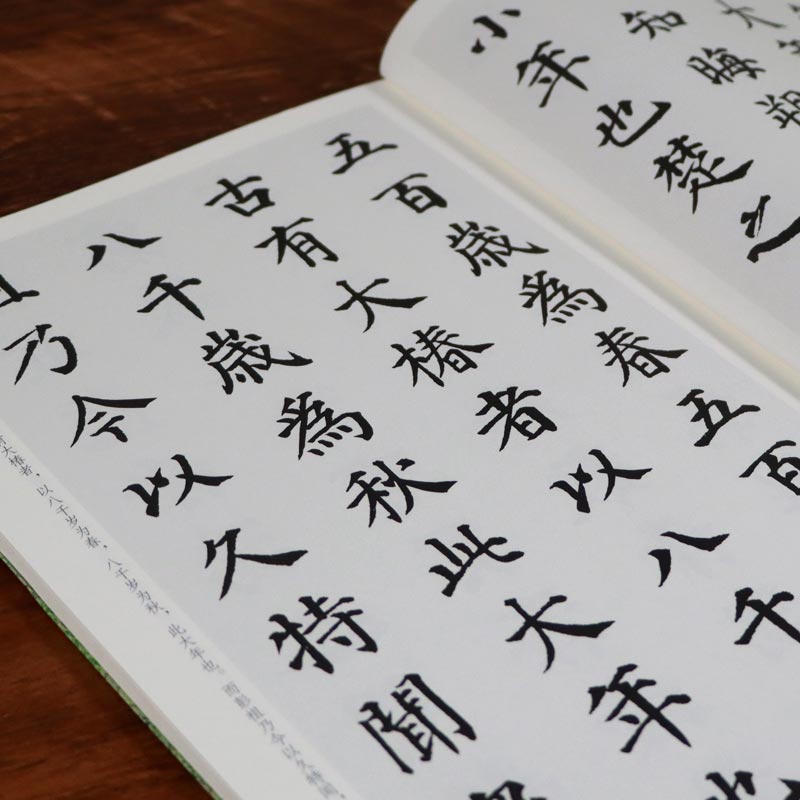 大
知晦朔
小年也楚之
五百歲為春五百
古有大椿者以八千
八千歲為秋此大年
乃今以久特聞
大椿者，以八千岁为春，八千岁为秋，此大年也。而彭祖乃今以久特闻，